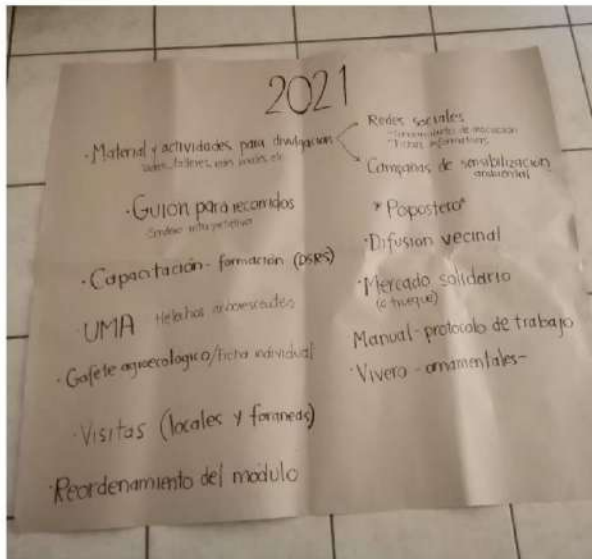 2021
· Material y actividades para divulgación
talleres, redes sociales, etc
· Guion para recorridos
- Sendero interpretativo
· Capacitación - formación (DSRS)
· UMA Helechos arborescentes
· Gafete agroecológico/ficha individual
· Visitas (locales y foraneas)
· Reordenamiento del módulo
Redes sociales
Fichas informativas
Campañas de sensibilización
ambiental
* Popostero*
· Difusion vecinal
· Mercado solidario
(o trueque)
Manual - protocolo de trabajo
· Vivero - ornamentales -